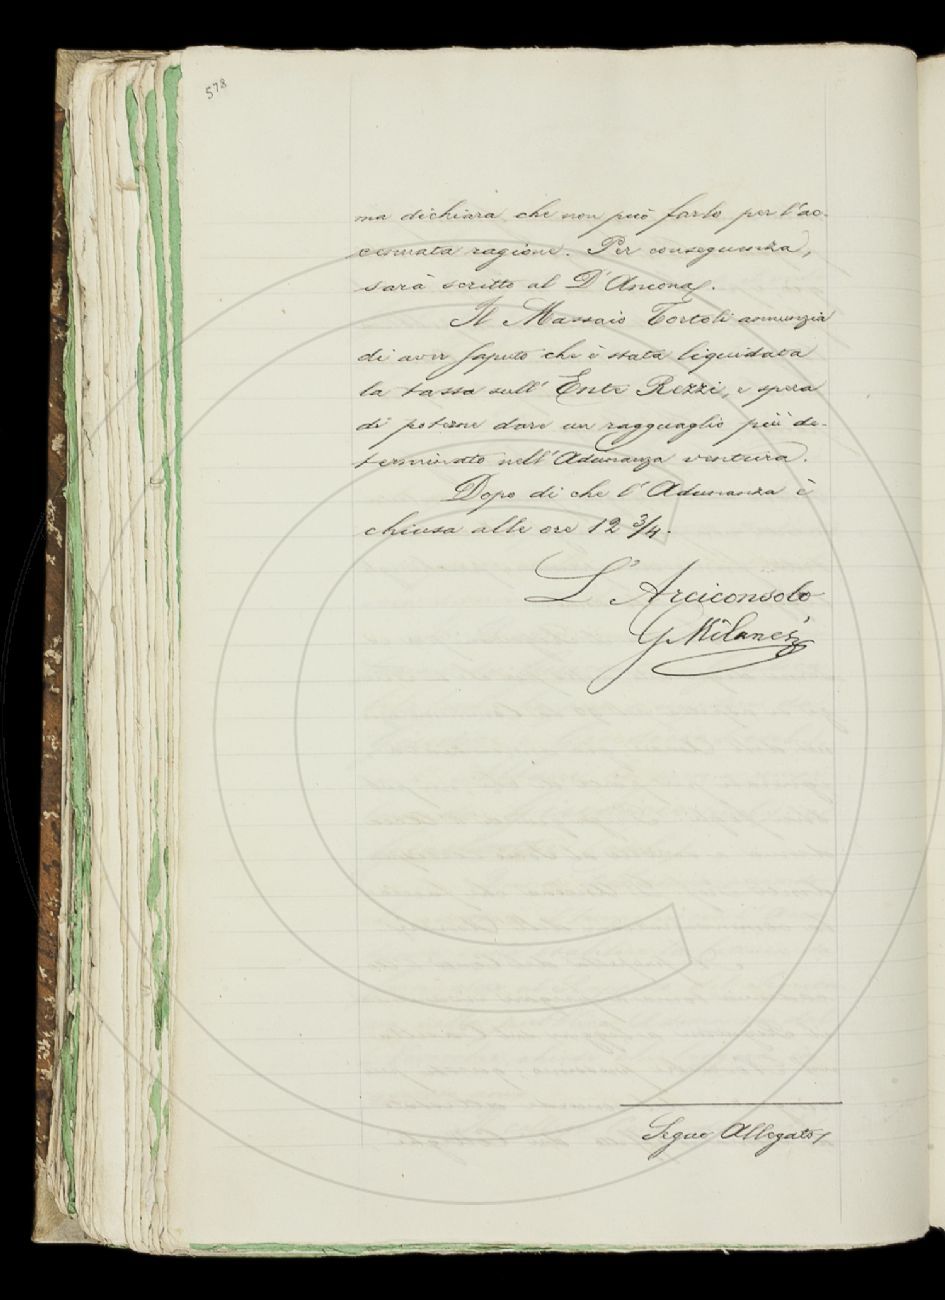 578
ma dichiara che non può farlo per l'ac-
cennata ragione. Per conseguenza,
sarà scritto al D'Ancona.
Il Massaio Tortoli annunzia
di aver saputo che è stata liquidata
la tassa sull' Ente Rezzi, e spera
di poterne dare un ragguaglio più de-
terminato nell' Adunanza ventura.
Dopo di che l' Adunanza è
chiusa alle ore 12 3/4.
L' Arciconsolo
G Milanesi
Segue Allegato/